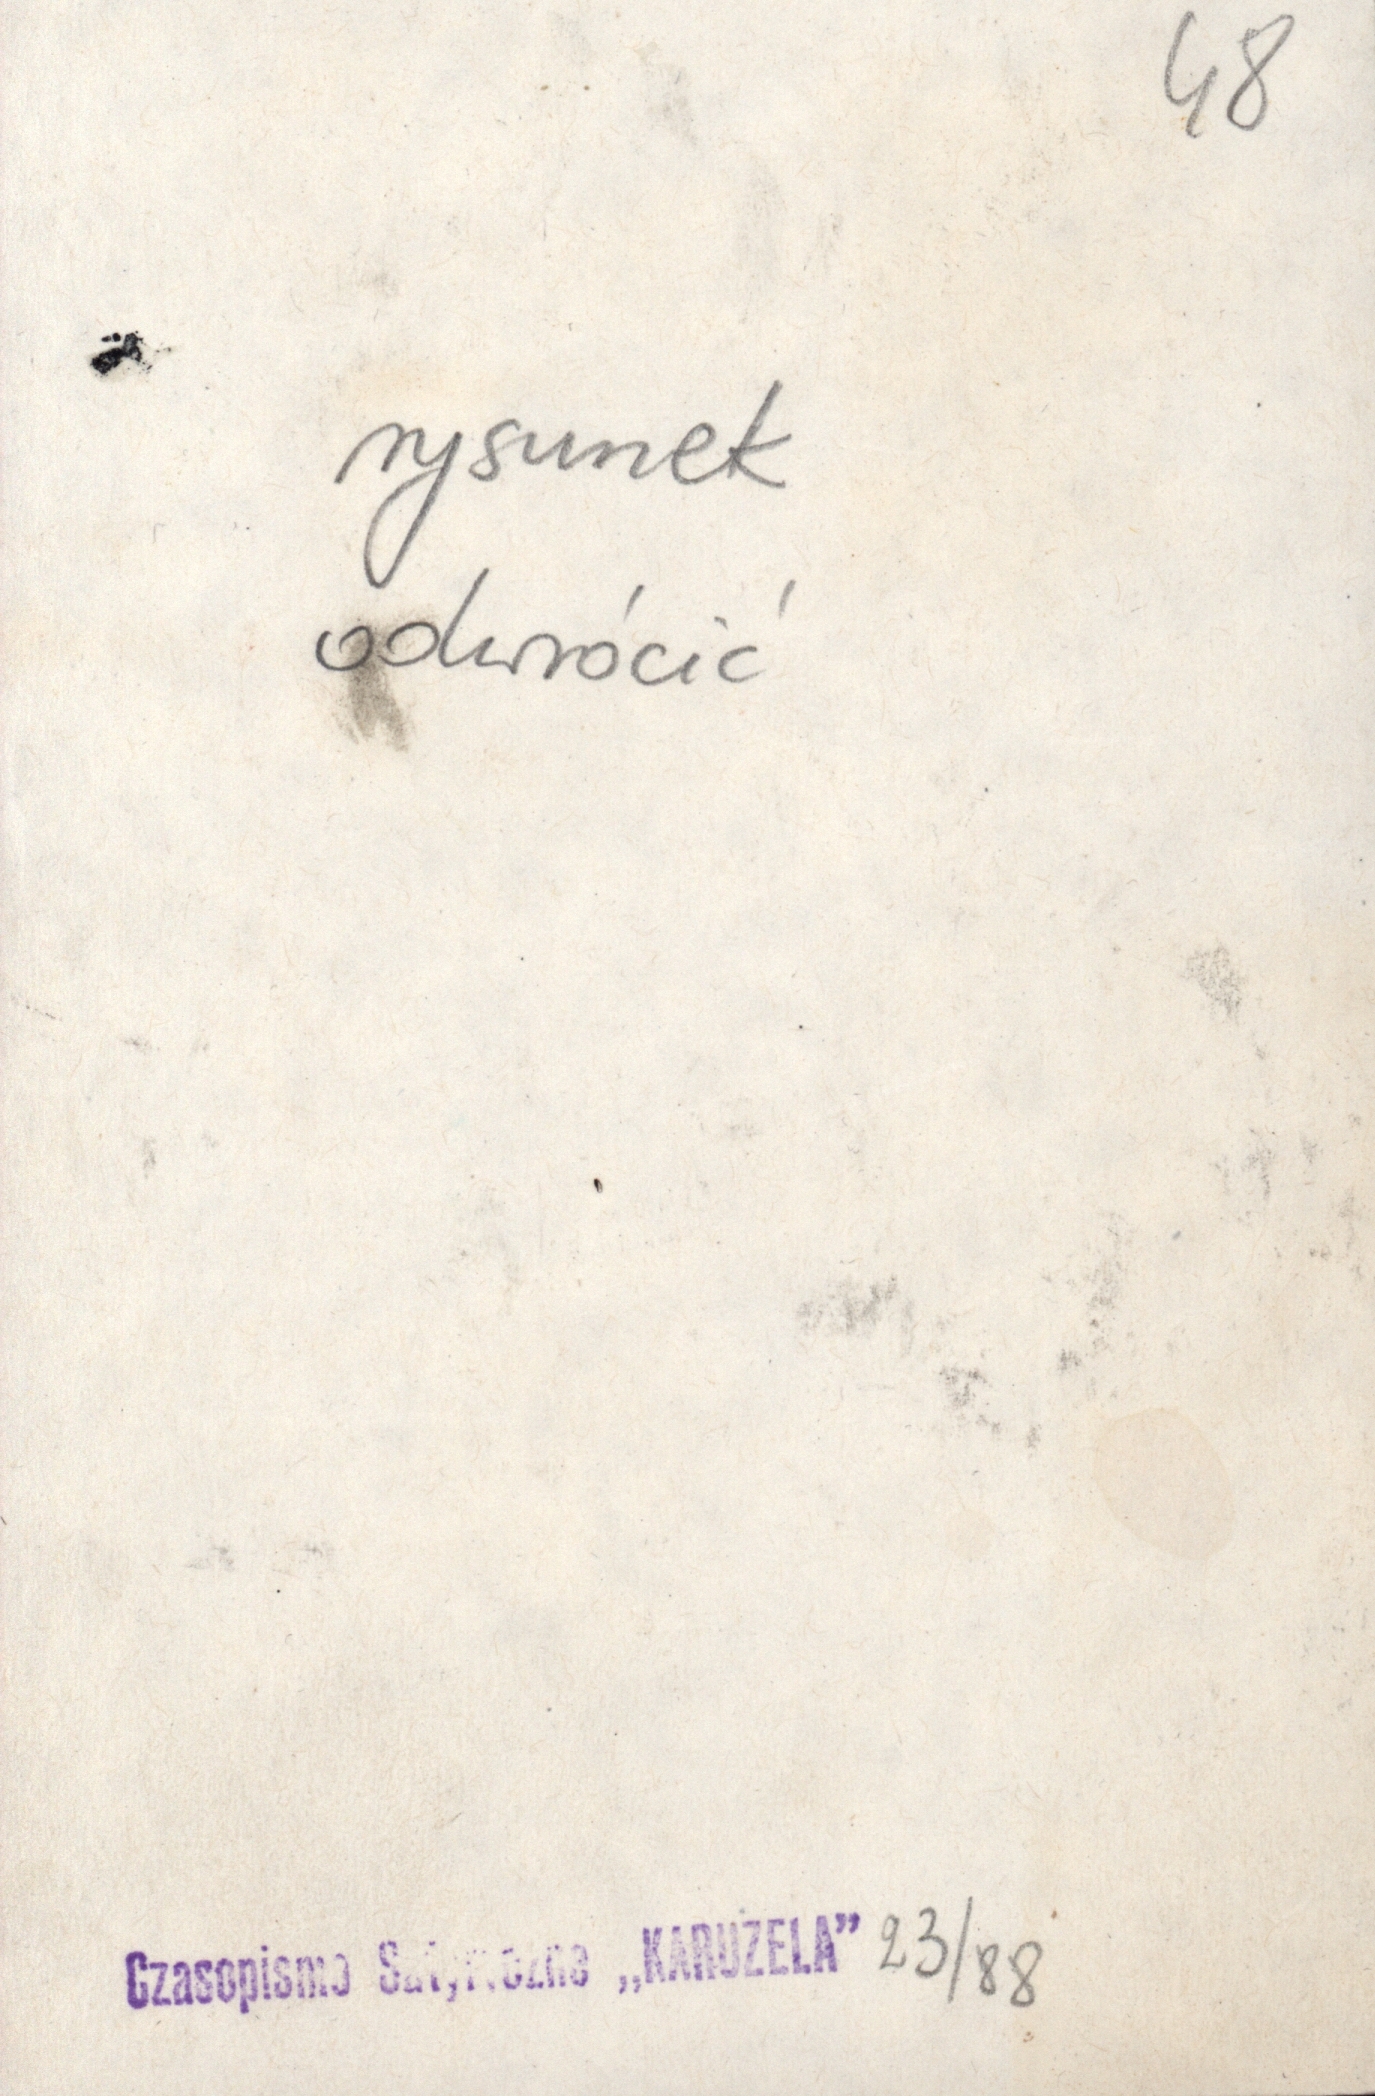 48
rysunek
odwrócić
Czasopismo Satyryczne „KARUZELA” 23/88